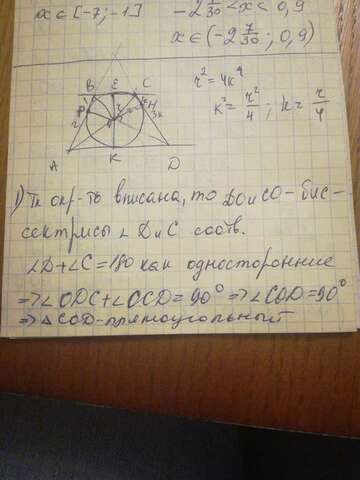 x ∈ [-7; -1]
-2 7/30 < x < 0,9
x ∈ (-2 7/30; 0,9)
r² = 4k⁴
k² = r²/4 ; k = r/4
B E C
P
H
3k
O
r
A K D
1) Тк окр-ть вписана, то DO и CO - бис-
сектрисы ∠D и C соотв.
∠D+∠C=180 как односторонние
=> ∠ODC+∠OCD=90° => ∠COD=90°
=> △COD-прямоугольный